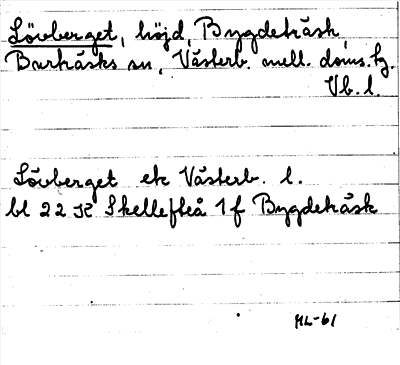 Lövberget, höjd, Bygdeträsk,
Burträsks sn, Västerb. mell. doms. tg.
Vb. l.
Lövberget ek Västerb. l.
bl 22 K Skellefteå 1 f Bygdeträsk
ML-61